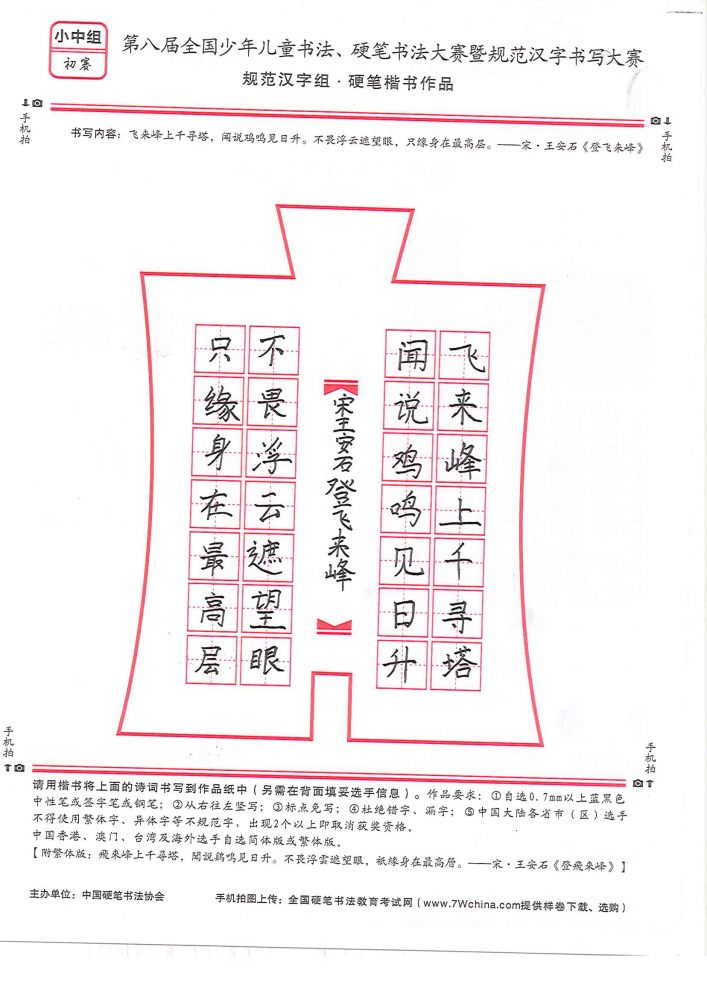 小中组
初赛
第八届全国少年儿童书法、硬笔书法大赛暨规范汉字书写大赛
规范汉字组·硬笔楷书作品
手机拍
手机拍
书写内容：飞来峰上千寻塔，闻说鸡鸣见日升。不畏浮云遮望眼，只缘身在最高层。——宋·王安石《登飞来峰》
飞来峰上千寻塔
闻说鸡鸣见日升
宋王安石登飞来峰
不畏浮云遮望眼
只缘身在最高层
手机拍
手机拍
请用楷书将上面的诗词书写到作品纸中（另需在背面填妥选手信息）。作品要求：①自选0.7mm以上蓝黑色
中性笔或签字笔或钢笔；②从右往左竖写；③标点免写；④杜绝错字、漏字；⑤中国大陆各省市（区）选手
不得使用繁体字、异体字等不规范字，出现2个以上即取消获奖资格。
中国香港、澳门、台湾及海外选手自选简体版或繁体版。
【附繁体版：飛來峰上千尋塔，聞說鷄鳴見日升。不畏浮雲遮望眼，祇緣身在最高層。——宋·王安石《登飛來峰》】
主办单位：中国硬笔书法协会
手机拍图上传：全国硬笔书法教育考试网（www.7Wchina.com提供样卷下载、选购）